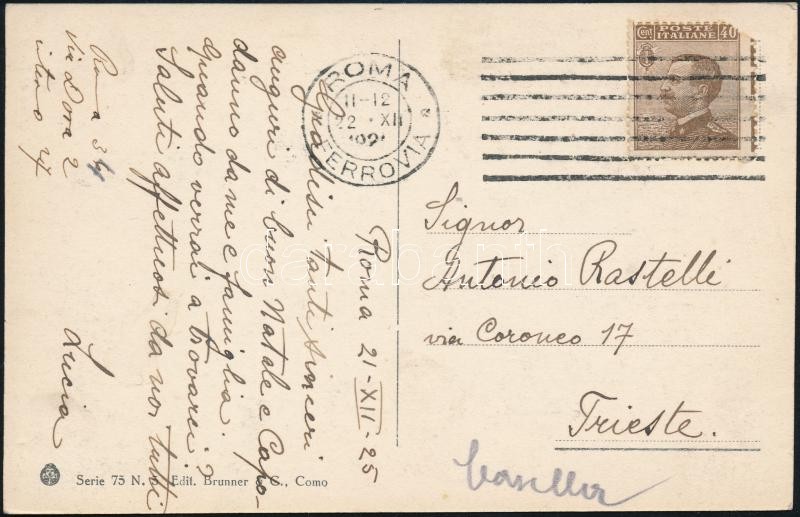 Roma 21-XII-25
Gradisci tanti sinceri
auguri di buon Natale e Capo-
danno da me e famiglia.
Quando verrai a trovarci?
Saluti affettuosi da noi tutti
Lucia
Roma 34
via Dora 2
interno 4
ROMA
11-12
22 XII
192
FERROVIA
Cent POSTE 40
ITALIANE
Signor
Antonio Rastelli
via Coroneo 17
Trieste.
Serie 75 N. Edit. Brunner & C., Como
darabanth.com